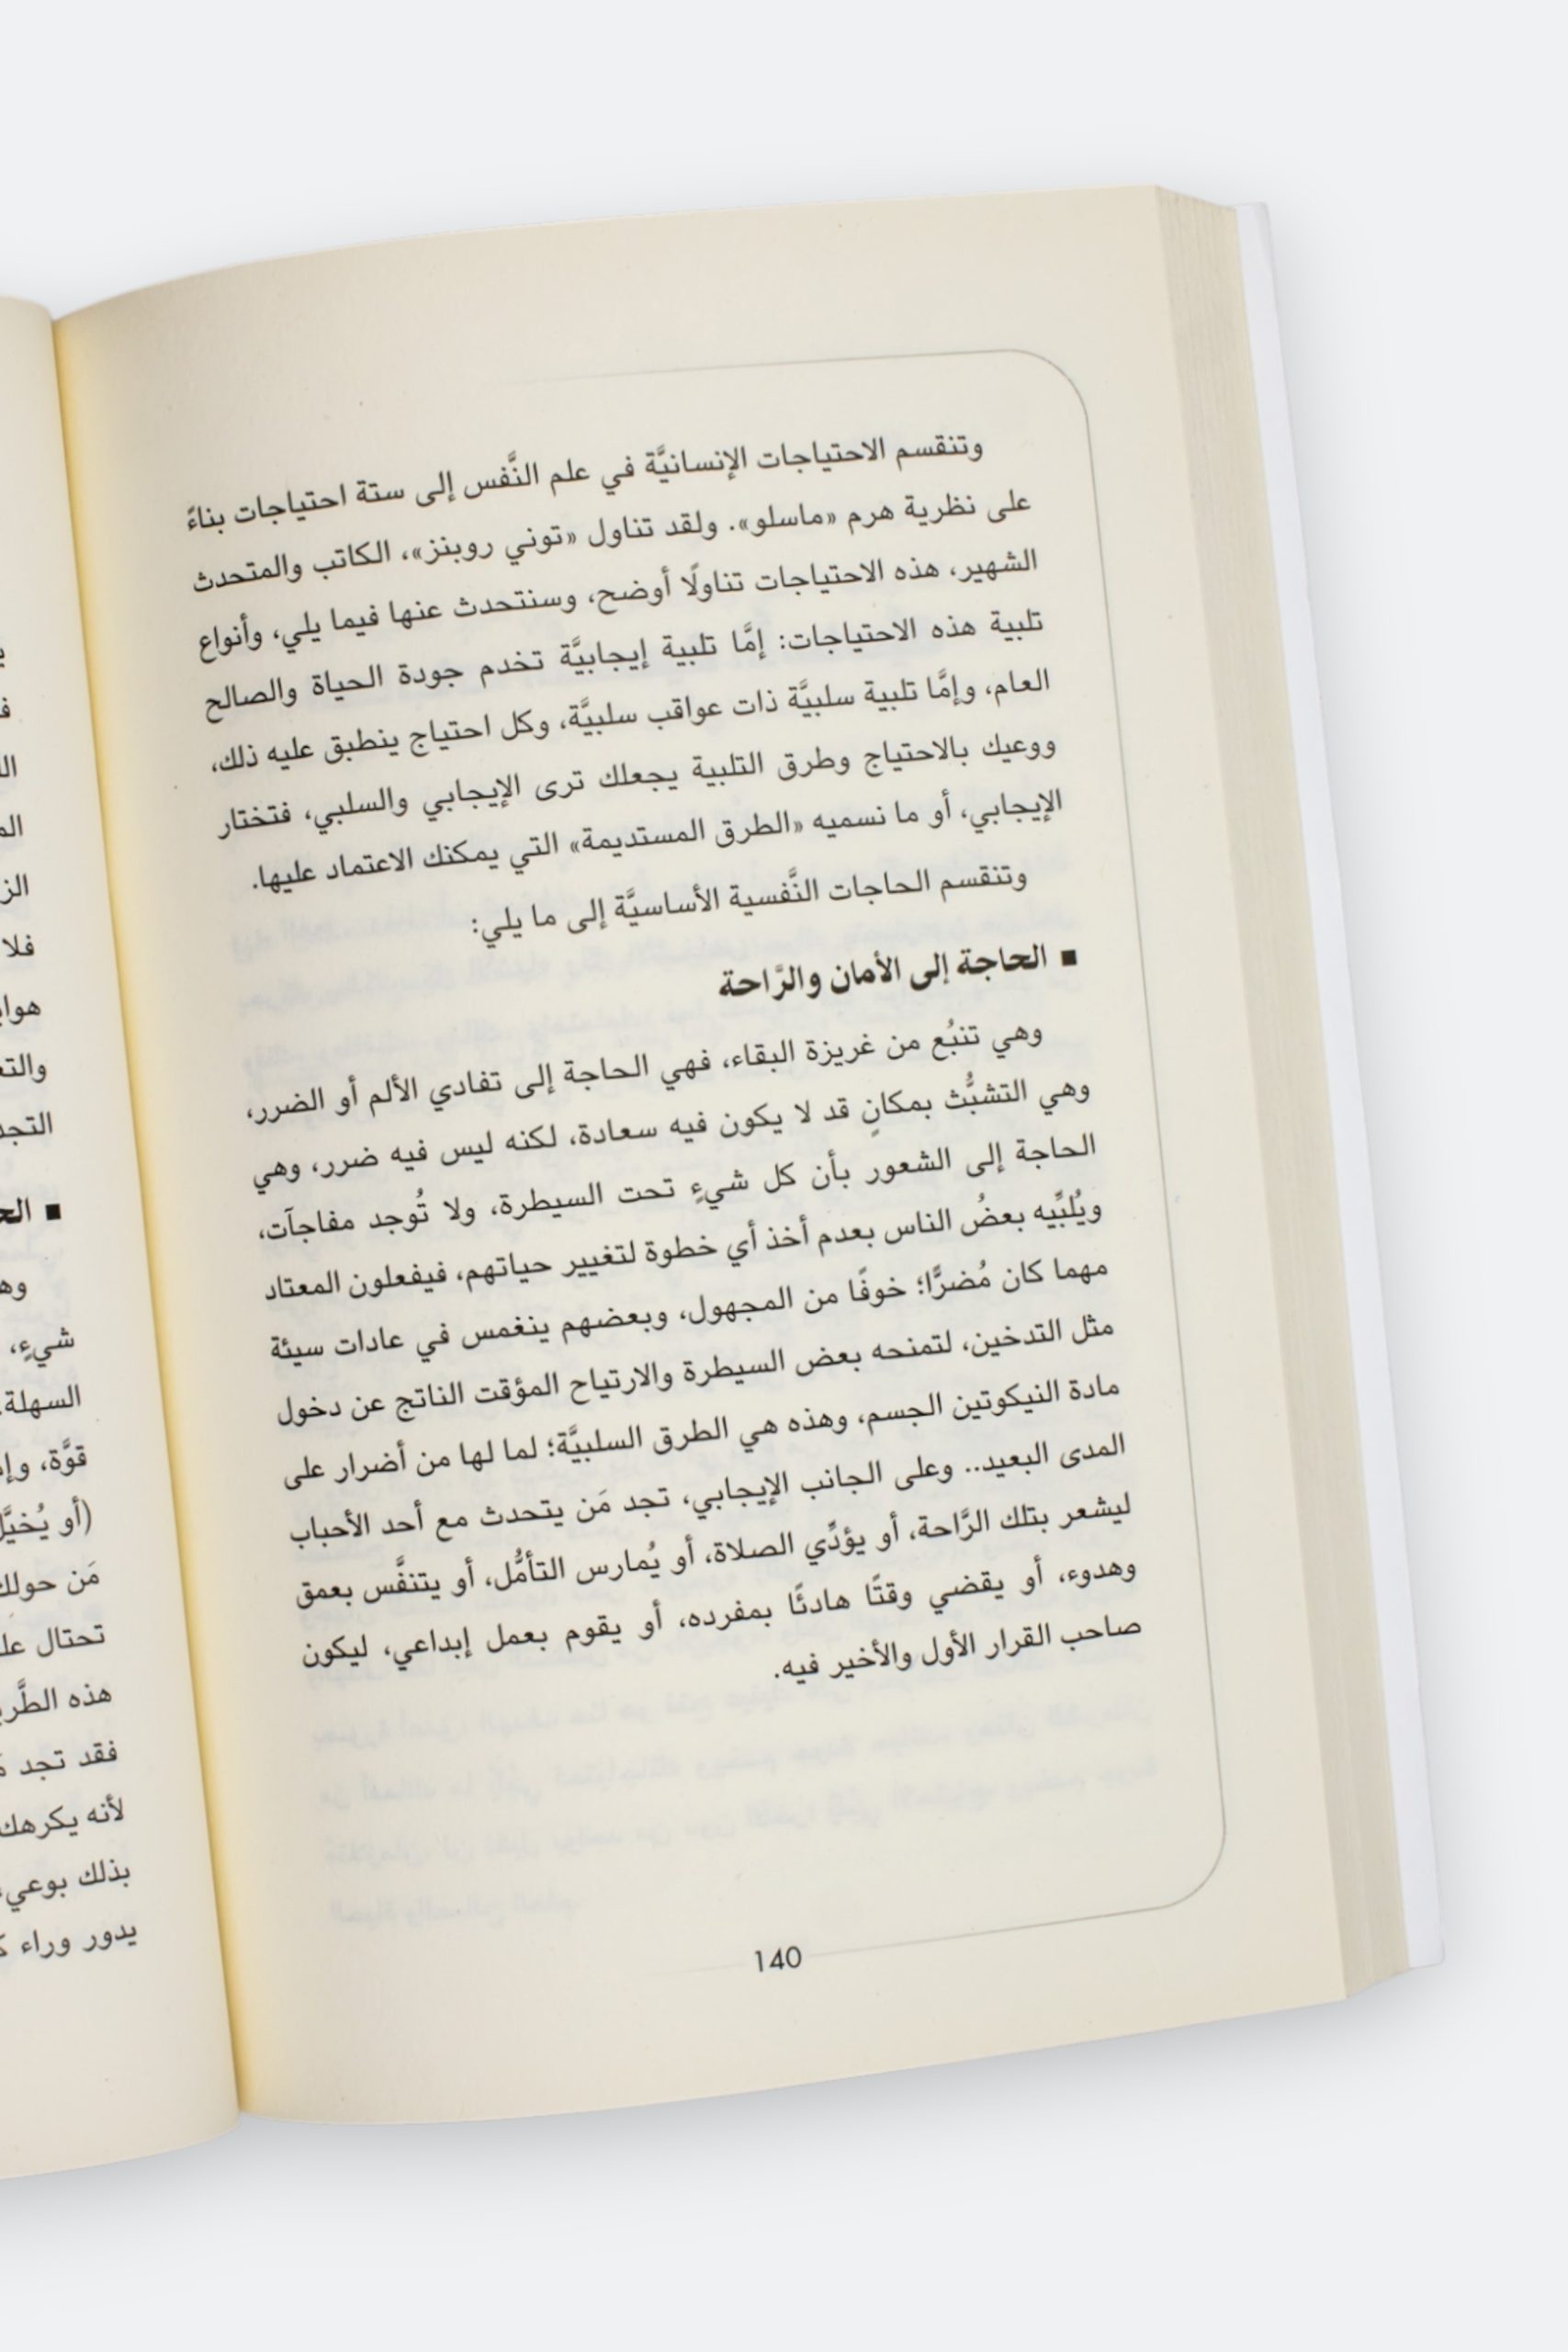 وتنقسم الاحتياجات الإنسانيَّة في علم النَّفس إلى ستة احتياجات بناءً
على نظرية هرم «ماسلو». ولقد تناول «توني روبنز»، الكاتب والمتحدث
الشهير، هذه الاحتياجات تناولًا أوضح، وسنتحدث عنها فيما يلي، وأنواع
تلبية هذه الاحتياجات: إمَّا تلبية إيجابيَّة تخدم جودة الحياة والصالح
العام، وإمَّا تلبية سلبيَّة ذات عواقب سلبيَّة، وكل احتياج ينطبق عليه ذلك،
ووعيك بالاحتياج وطرق التلبية يجعلك ترى الإيجابي والسلبي، فتختار
الإيجابي، أو ما نسميه «الطرق المستديمة» التي يمكنك الاعتماد عليها.
وتنقسم الحاجات النَّفسية الأساسيَّة إلى ما يلي:
▪ الحاجة إلى الأمان والرَّاحة
وهي تنبُع من غريزة البقاء، فهي الحاجة إلى تفادي الألم أو الضرر،
وهي التشبُّث بمكانٍ قد لا يكون فيه سعادة، لكنه ليس فيه ضرر، وهي
الحاجة إلى الشعور بأن كل شيءٍ تحت السيطرة، ولا تُوجد مفاجآت،
ويُلبِّيه بعضُ الناس بعدم أخذ أي خطوة لتغيير حياتهم، فيفعلون المعتاد
مهما كان مُضرًّا؛ خوفًا من المجهول، وبعضهم ينغمس في عادات سيئة
مثل التدخين، لتمنحه بعض السيطرة والارتياح المؤقت الناتج عن دخول
مادة النيكوتين الجسم، وهذه هي الطرق السلبيَّة؛ لما لها من أضرار على
المدى البعيد.. وعلى الجانب الإيجابي، تجد مَن يتحدث مع أحد الأحباب
ليشعر بتلك الرَّاحة، أو يؤدِّي الصلاة، أو يُمارس التأمُّل، أو يتنفَّس بعمق
وهدوء، أو يقضي وقتًا هادئًا بمفرده، أو يقوم بعمل إبداعي، ليكون
صاحب القرار الأول والأخير فيه.
140
فلا
▪
شيءٍ،
السهلة
قوَّة،
(أو
مَن
تحتال
هذه
فقد تجد
لأنه يكرهك
بذلك بوعي
يدور وراء